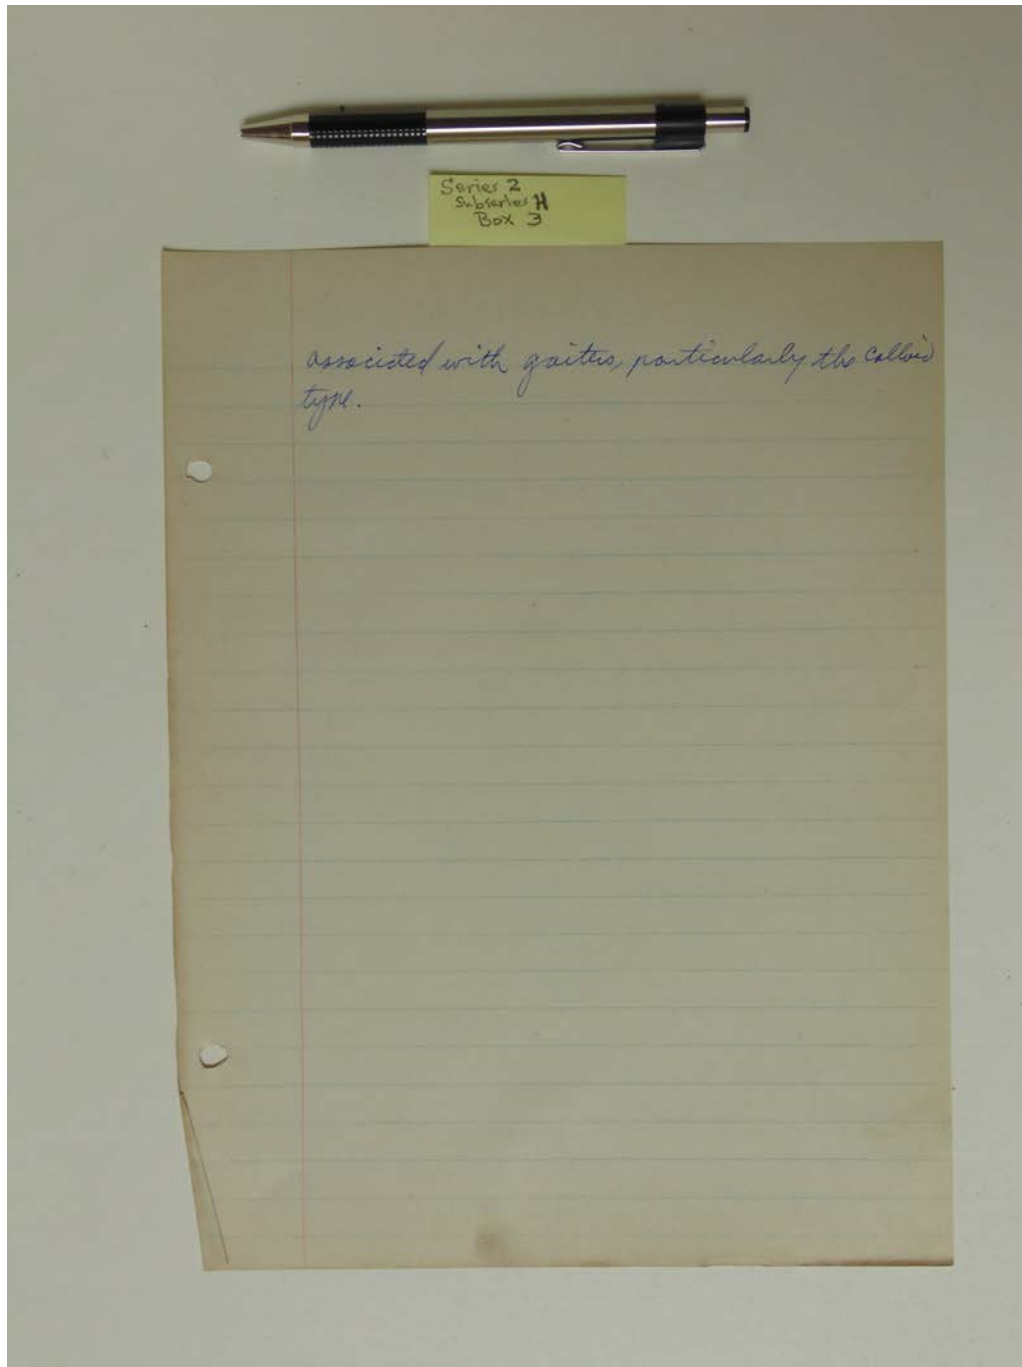 Series 2
Subseries H
Box 3
associated with goiters, particularly the colloid
type.